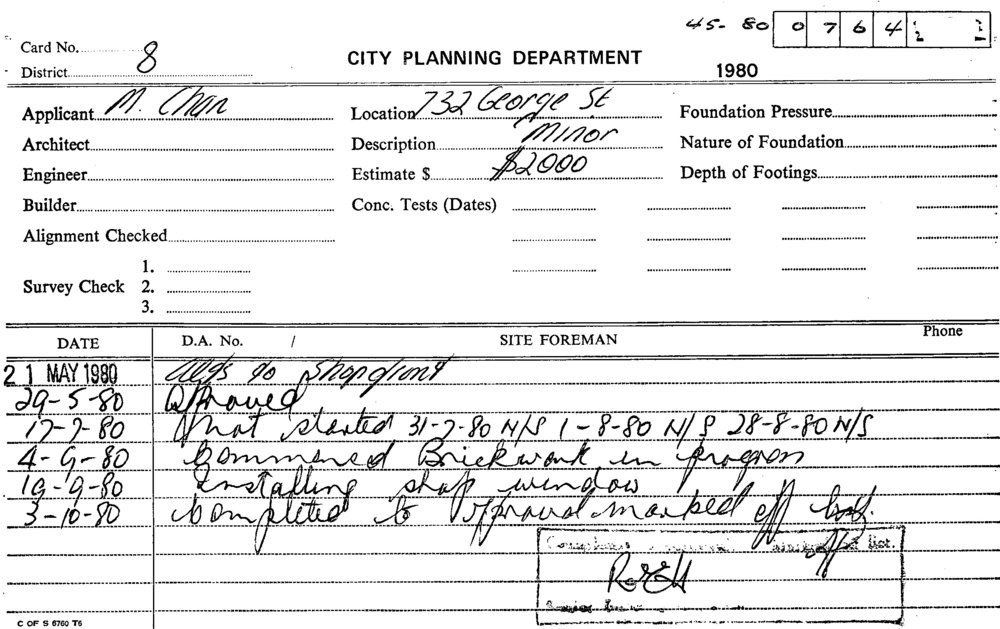 45-80 0764
Card No. 8
District
CITY PLANNING DEPARTMENT
1980
Applicant M. Chan
Location 732 George St
Foundation Pressure
Architect
Description Minor
Nature of Foundation
Engineer
Estimate $ $2000
Depth of Footings
Builder
Conc. Tests (Dates)
Alignment Checked
Survey Check
1.
2.
3.
DATE
D.A. No. /
SITE FOREMAN
Phone
21 MAY 1980 Alts to Shopfront
29-5-80 Approved
17-7-80 Not started 31-7-80 N/S 1-8-80 N/S 28-8-80 N/S
4-9-80 Commenced Brickwork in progress
19-9-80 Installing shop window
3-10-80 Completed to approval marked off
list.
C OF S 6760 T6